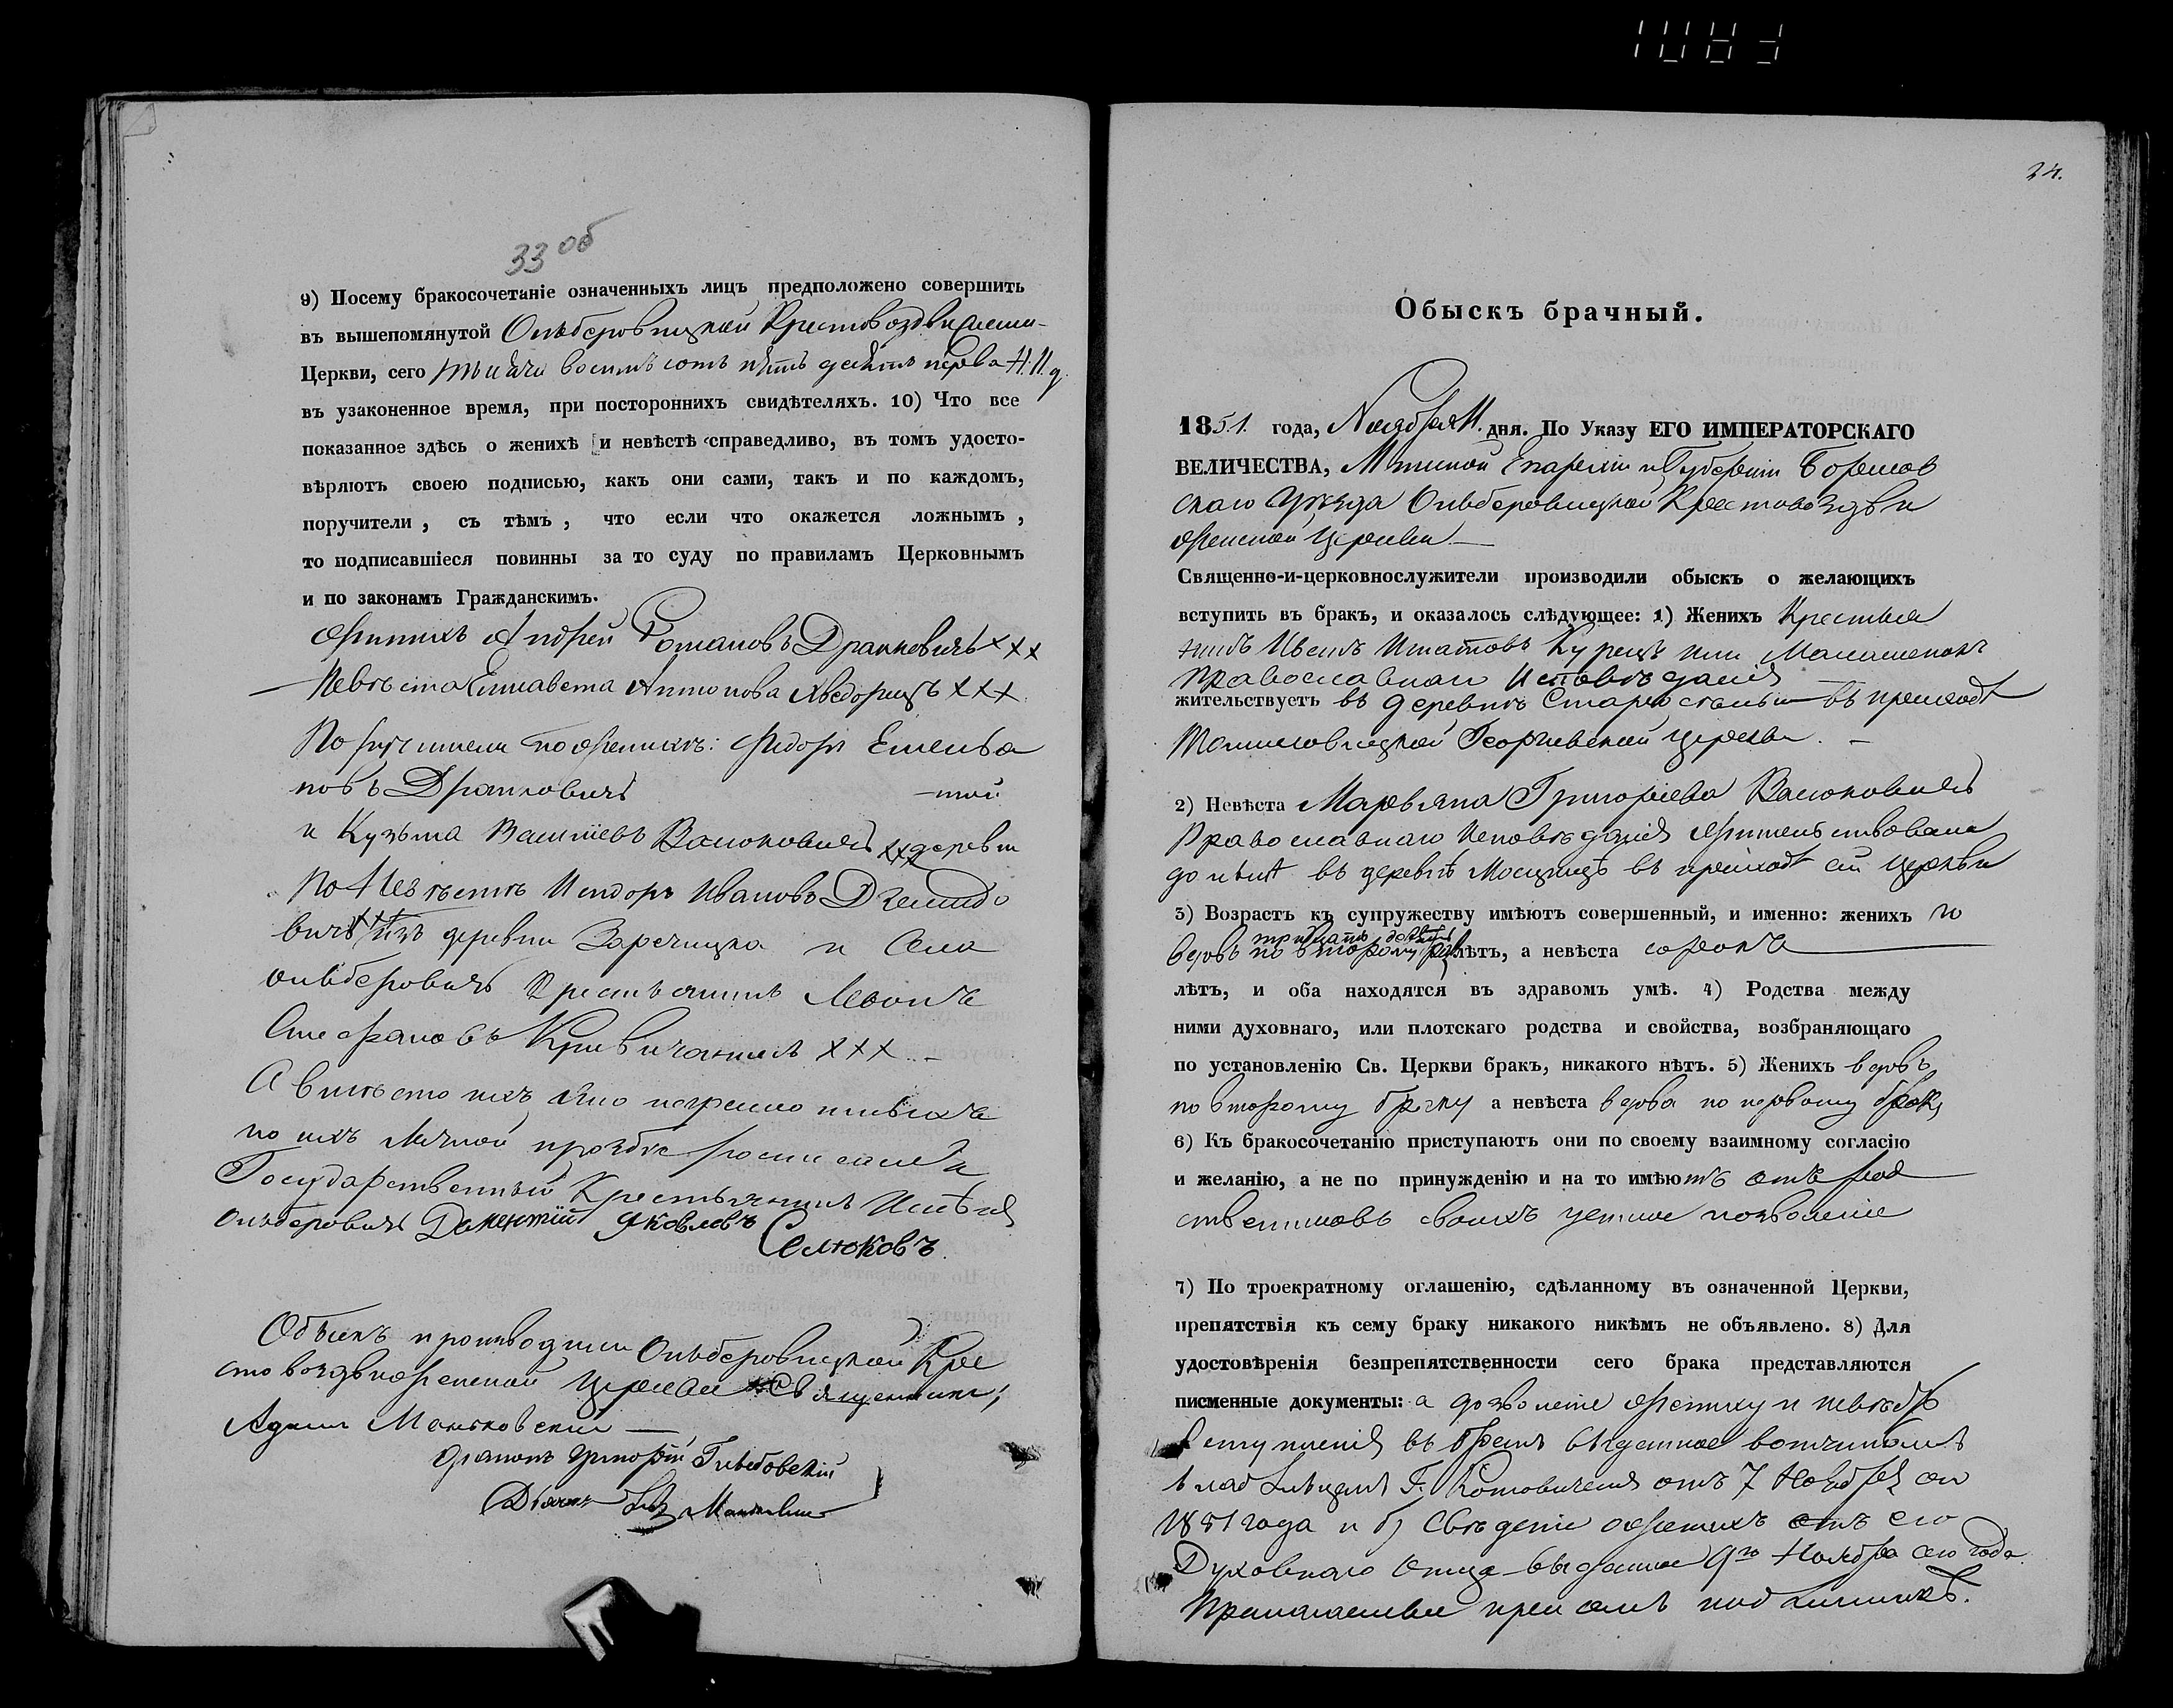 33 об
9) Посему бракосочетаніе означенныхъ лицъ предположено совершить
въ вышепомянутой Ольберовицкой Крестовоздвижен-
Церкви, сего тысяча восемь сотъ пять десятъ перва Н. 11. д.
въ узаконенное время, при постороннихъ свидѣтеляхъ. 10) Что все
показанное здѣсь о женихѣ и невѣстѣ справедливо, въ томъ удосто-
вѣряютъ своею подписью, какъ они сами, такъ и по каждомъ,
поручители, съ тѣмъ, что если что окажется ложнымъ,
то подписавшіеся повинны за то суду по правиламъ Церковнымъ
и по законамъ Гражданскимъ.
Женихъ Андрей Романовъ Драпковичъ ХХХ
Невѣста Елисавета Антонова ХХХ
Поручители по женихѣ: Федоръ Емелья
новъ Драпковичъ
и Кузьма Васильевъ Валюковичъ ХХХ деревни
По Невѣстѣ Исидоръ Ивановъ
вичъ ХХХ изъ деревни Заречицка и Села
Ольберовичъ Крестьянинъ Леонъ
Стефановъ Кривичанинъ ХХХ
А вмѣсто ихъ яко неграмотныхъ
по ихъ личной прозбѣ росписался
Государственный Крестьянинъ Имѣнія
Ольберовичъ Дометтій Яковлевъ
Селюковъ.
Обыскъ производили Ольберовицкой Кре
стовоздвиженской Церкви Священникъ,
Адамъ Маньковскій
Дьячекъ
24.
Обыскъ брачный.
1851. года, Ноября 11. дня. По Указу ЕГО ИМПЕРАТОРСКАГО
ВЕЛИЧЕСТВА, Минской Епархіи и Губерніи Борисов
скаго Уѣзда Ольберовицкой Крестовоздви
женской Церкви
Священно-и-церковнослужители производили обыскъ о желающихъ
вступить въ бракъ, и оказалось слѣдующее: 1) Женихъ Крестья
нинъ Игнатовъ Курецъ или
Православнаго Исповѣданія
жительствуетъ въ деревнѣ въ приходѣ
Георгіевской церкви.
2) Невѣста Марьяна Григорьева Валюковичъ
Православнаго Исповѣданія жительствовала
до нынѣ въ деревнѣ въ приходѣ сей церкви
3) Возрастъ къ супружеству имѣютъ совершенный, и именно: женихъ
вдовъ по второму тридцать девять лѣтъ, а невѣста сорокъ
лѣтъ, и оба находятся въ здравомъ умѣ. 4) Родства между
ними духовнаго, или плотскаго родства и свойства, возбраняющаго
по установленію Св. Церкви бракъ, никакого нѣтъ. 5) Женихъ вдовъ
по второму браку а невѣста вдова по первому браку
6) Къ бракосочетанію приступаютъ они по своему взаимному согласію
и желанію, а не по принужденію и на то имѣютъ отъ род
ственниковъ своихъ устное позволеніе
7) По троекратному оглашенію, сдѣланному въ означенной Церкви,
препятствія къ сему браку никакого никѣмъ не объявлено. 8) Для
удостовѣренія безпрепятственности сего брака представляются
писменные документы: а дозволеніе жениху и невѣстѣ
вступленія въ бракъ выданное вотчиннымъ
владѣльцемъ Г. Котовичемъ отъ 7 Ноября сего
1851 года и б) Свѣденіе о женихѣ отъ его
Духовнаго Отца выданное 9го Ноября сего года
Прилагаемые при семъ подлинникѣ.